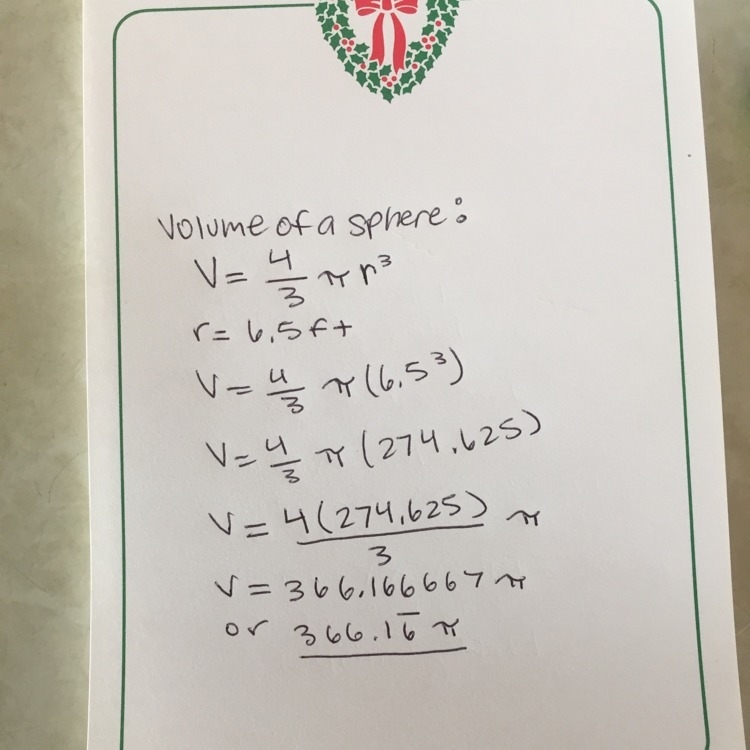 Volume of a sphere:
V = 4/3 π r³
r = 6.5 ft
V = 4/3 π (6.5³)
V = 4/3 π (274.625)
V = 4(274.625)/3 π
V = 366.166667 π
or 366.16̅ π